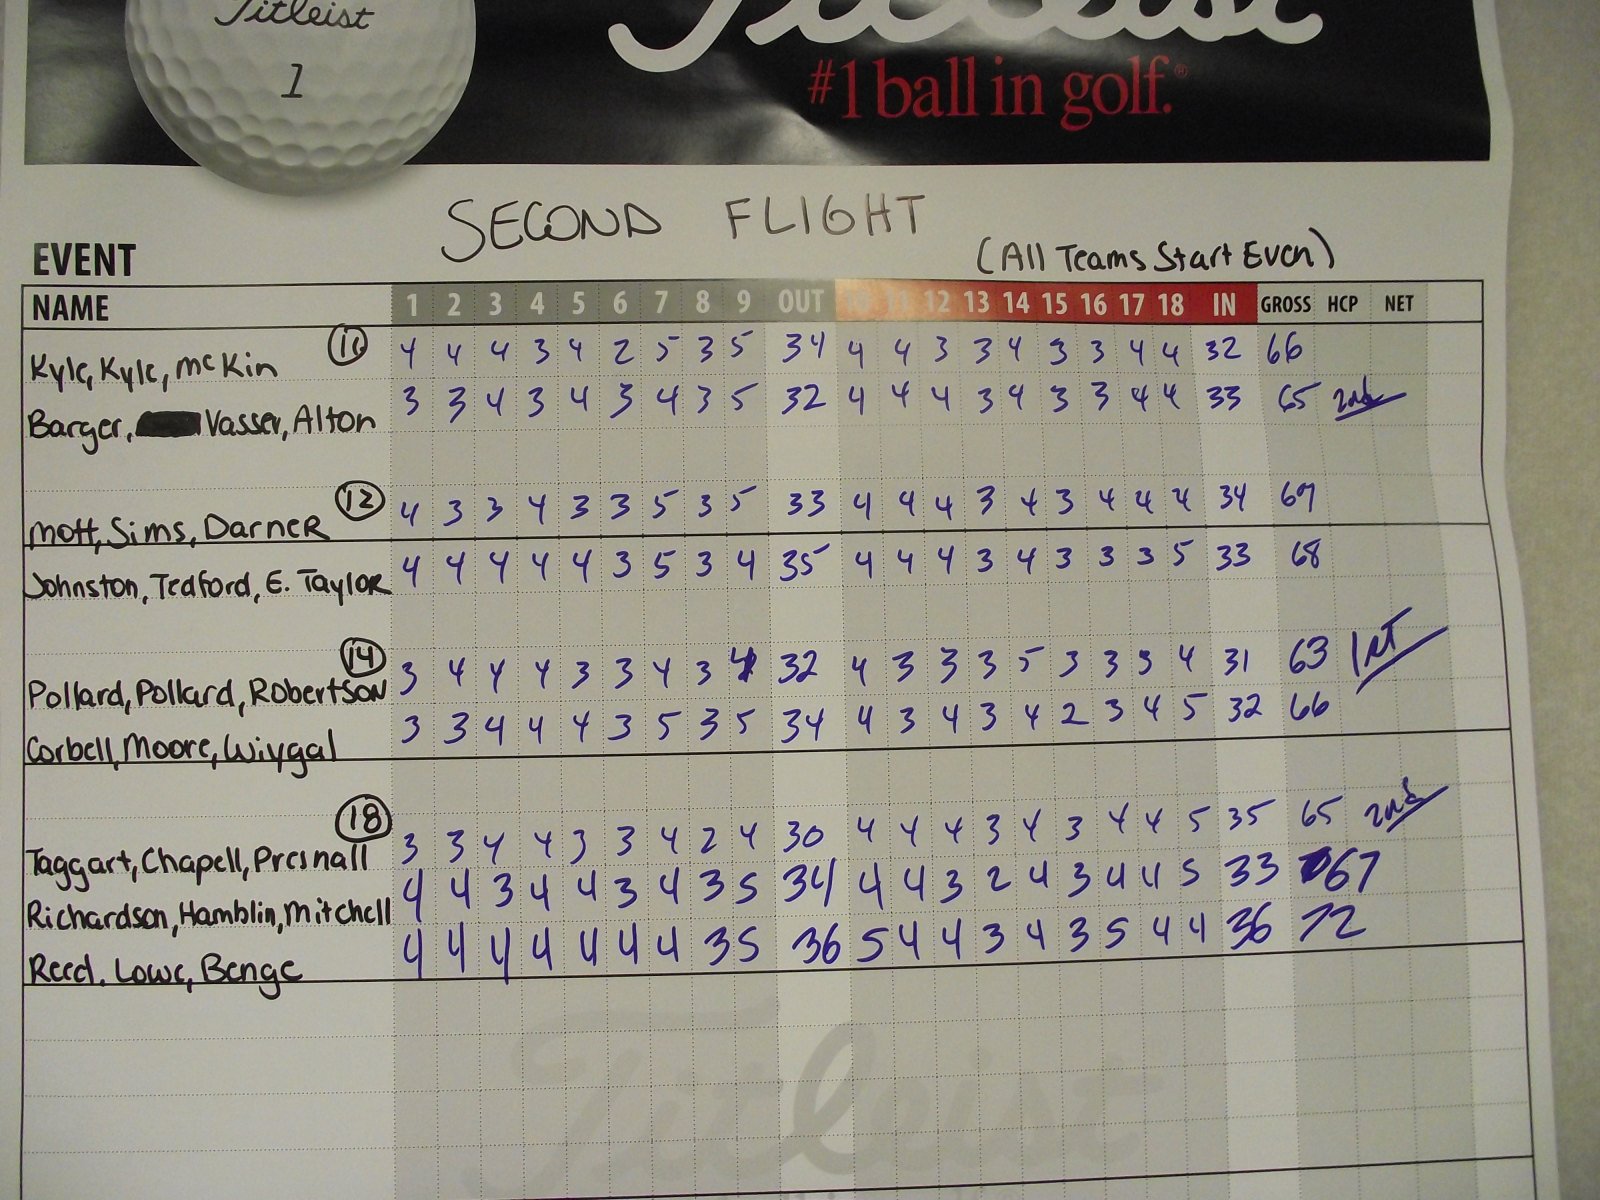 Titleist
1
Titleist
#1 ball in golf.®
SECOND FLIGHT
EVENT (All Teams Start Even)
NAME 1 2 3 4 5 6 7 8 9 OUT 10 11 12 13 14 15 16 17 18 IN GROSS HCP NET
Kyle, Kyle, McKin 4 4 4 3 4 2 5 3 5 34 4 4 3 3 4 3 3 4 4 32 66
Barger, Vasser, Alton 3 3 4 3 4 3 4 3 5 32 4 4 4 3 4 3 3 4 4 33 65 2nd
Mott, Sims, Darner 12 4 3 3 4 3 3 5 3 5 33 4 4 4 3 4 3 4 4 4 34 67
Johnston, Tedford, E. Taylor 4 4 4 4 4 3 5 3 4 35 4 4 4 3 4 3 3 3 5 33 68
Pollard, Pollard, Robertson 14 3 4 4 4 3 3 4 3 4 32 4 3 3 3 5 3 3 3 4 31 63 1st
Corbell, Moore, Wiygal 3 3 4 4 4 3 5 3 5 34 4 3 4 3 4 2 3 4 5 32 66
Taggart, Chapell, Presnall 18 3 3 4 4 3 3 4 2 4 30 4 4 4 3 4 3 4 4 5 35 65 2nd
Richardson, Hamblin, Mitchell 4 4 3 4 4 3 4 3 5 34 4 4 3 2 4 3 4 4 5 33 67
Reed, Lowe, Benge 4 4 4 4 4 4 4 3 5 36 5 4 4 3 4 3 5 4 4 36 72
Titleist